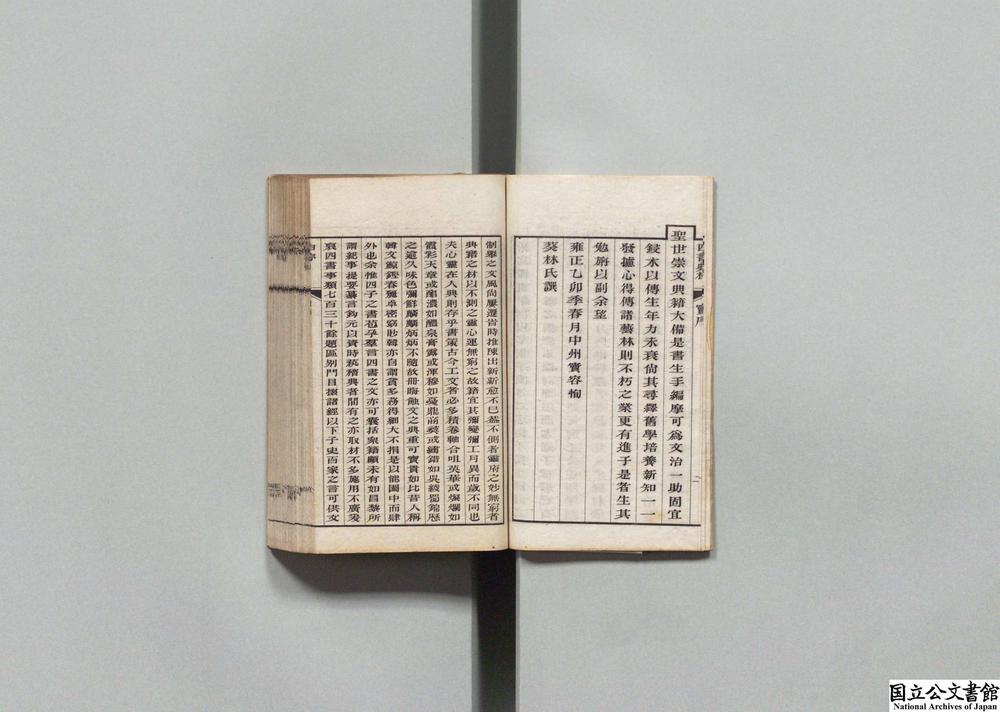 聖世崇文典籍大備是書生手編摩可為文治一助固宜
錢木以傳生年力未衰尚其尋繹舊學培養新知一一
發攄心得傳諸藝林則不朽之業更有進子是咨生其
勉旃以副余望
雍正乙卯季春月中州竇容恂
葵林氏譔
制舉之文風尚屢遷當時推陳出新新愈不已蓋不側者靈府之妙無窮者
典籍之材以不測之靈心運無窮之故籍宜其彌變彌工月異而歲不同也
夫心靈在人典則存乎書策古今工文者必多積卷軸含咀英華或爛如
霞彩天章或醲如醴泉膏露或渾穆如夏鼎商彝或繡錯如吳綾蜀錦歷
之遠久味色彌鮮麟麟炳炳不隨故冊晦蝕文之典重可寶貴如比昔人稱
韓文鯨鏗春麗卓密窈眇韓亦自謂貪多務得細大不捐是以能閎中而肆
外也余惟四子之書苞孕羣言四書之文亦可囊括眾籍顧未有如昌黎所
謂紀事提要纂言鉤元以資時秇積典者間有之亦取材不多施用不廣爰
裒四書事類七百三十餘題區別門目攘諸經以下子史百家之言可供文
国立公文書館
National Archives of Japan